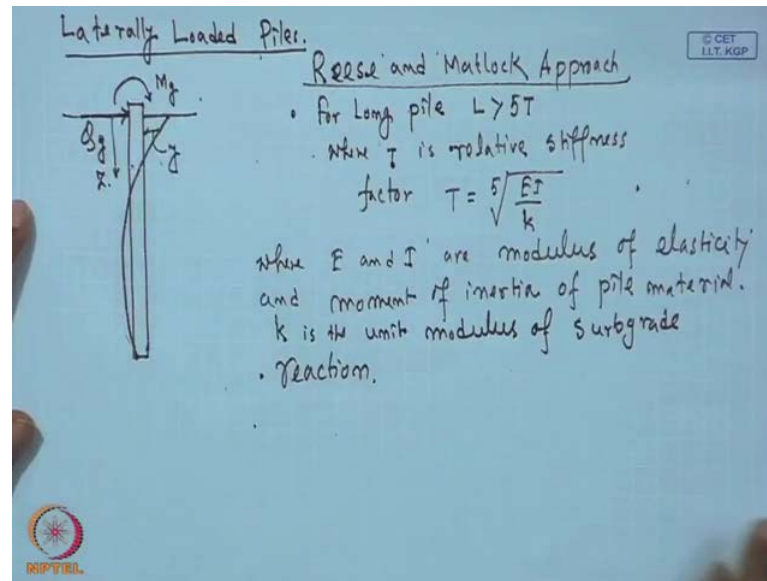 Laterally Loaded Piles.
© CET
I.I.T. KGP
Reese and Matlock Approach
Mg
Qg
y
Z.
• For Long pile L > 5T
where T is relative stiffness
factor T = ⁵√(EI/k)
where E and I are modulus of elasticity
and moment of inertia of pile material.
k is the unit modulus of surbgrade
• reaction.
NPTEL